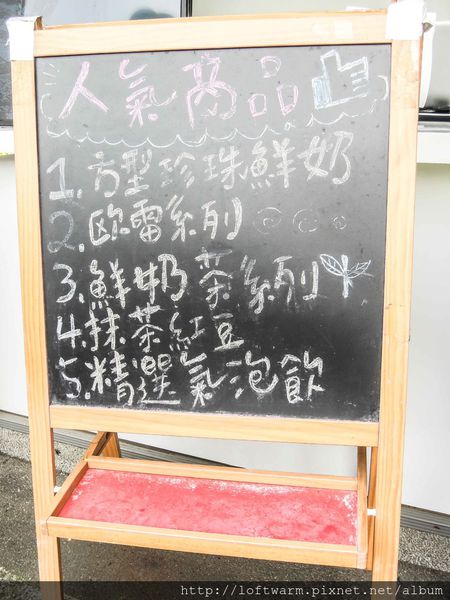 人氣商品
1. 方型珍珠鮮奶
2. 欧雷系列
3. 鮮奶茶系列
4. 抹茶紅豆
5. 精選氣泡飲
http://loftwarm.pixnet.net/album